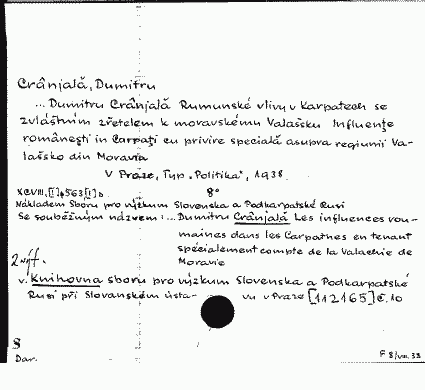 Crânjală, Dumitru
... Dumitru Crânjală Rumunské vlivy v Karpatech se
zvláštním zřetelem k moravskému Valašsku Influenţe
româneşti in Carpaţi cu privire specială asupra regiunii Va-
lašsko din Moravia
V Praze, Typ. „Politika", 1938
XCVIII, [I] 563 [1] s 8°
Nákladem Sboru pro výzkum Slovenska a Podkarpatské Rusi
Se souběžným názvem: ... Dumitru Crânjală Les influences rou-
maines dans les Carpathes en tenant
spécialement compte de la Valachie de
Moravie
v. Knihovna sboru pro výzkum Slovenska a Podkarpatské
Rusi při Slovanském ústa- vu v Praze [112165] č. 10
S
Dar. F 8/VII. 38